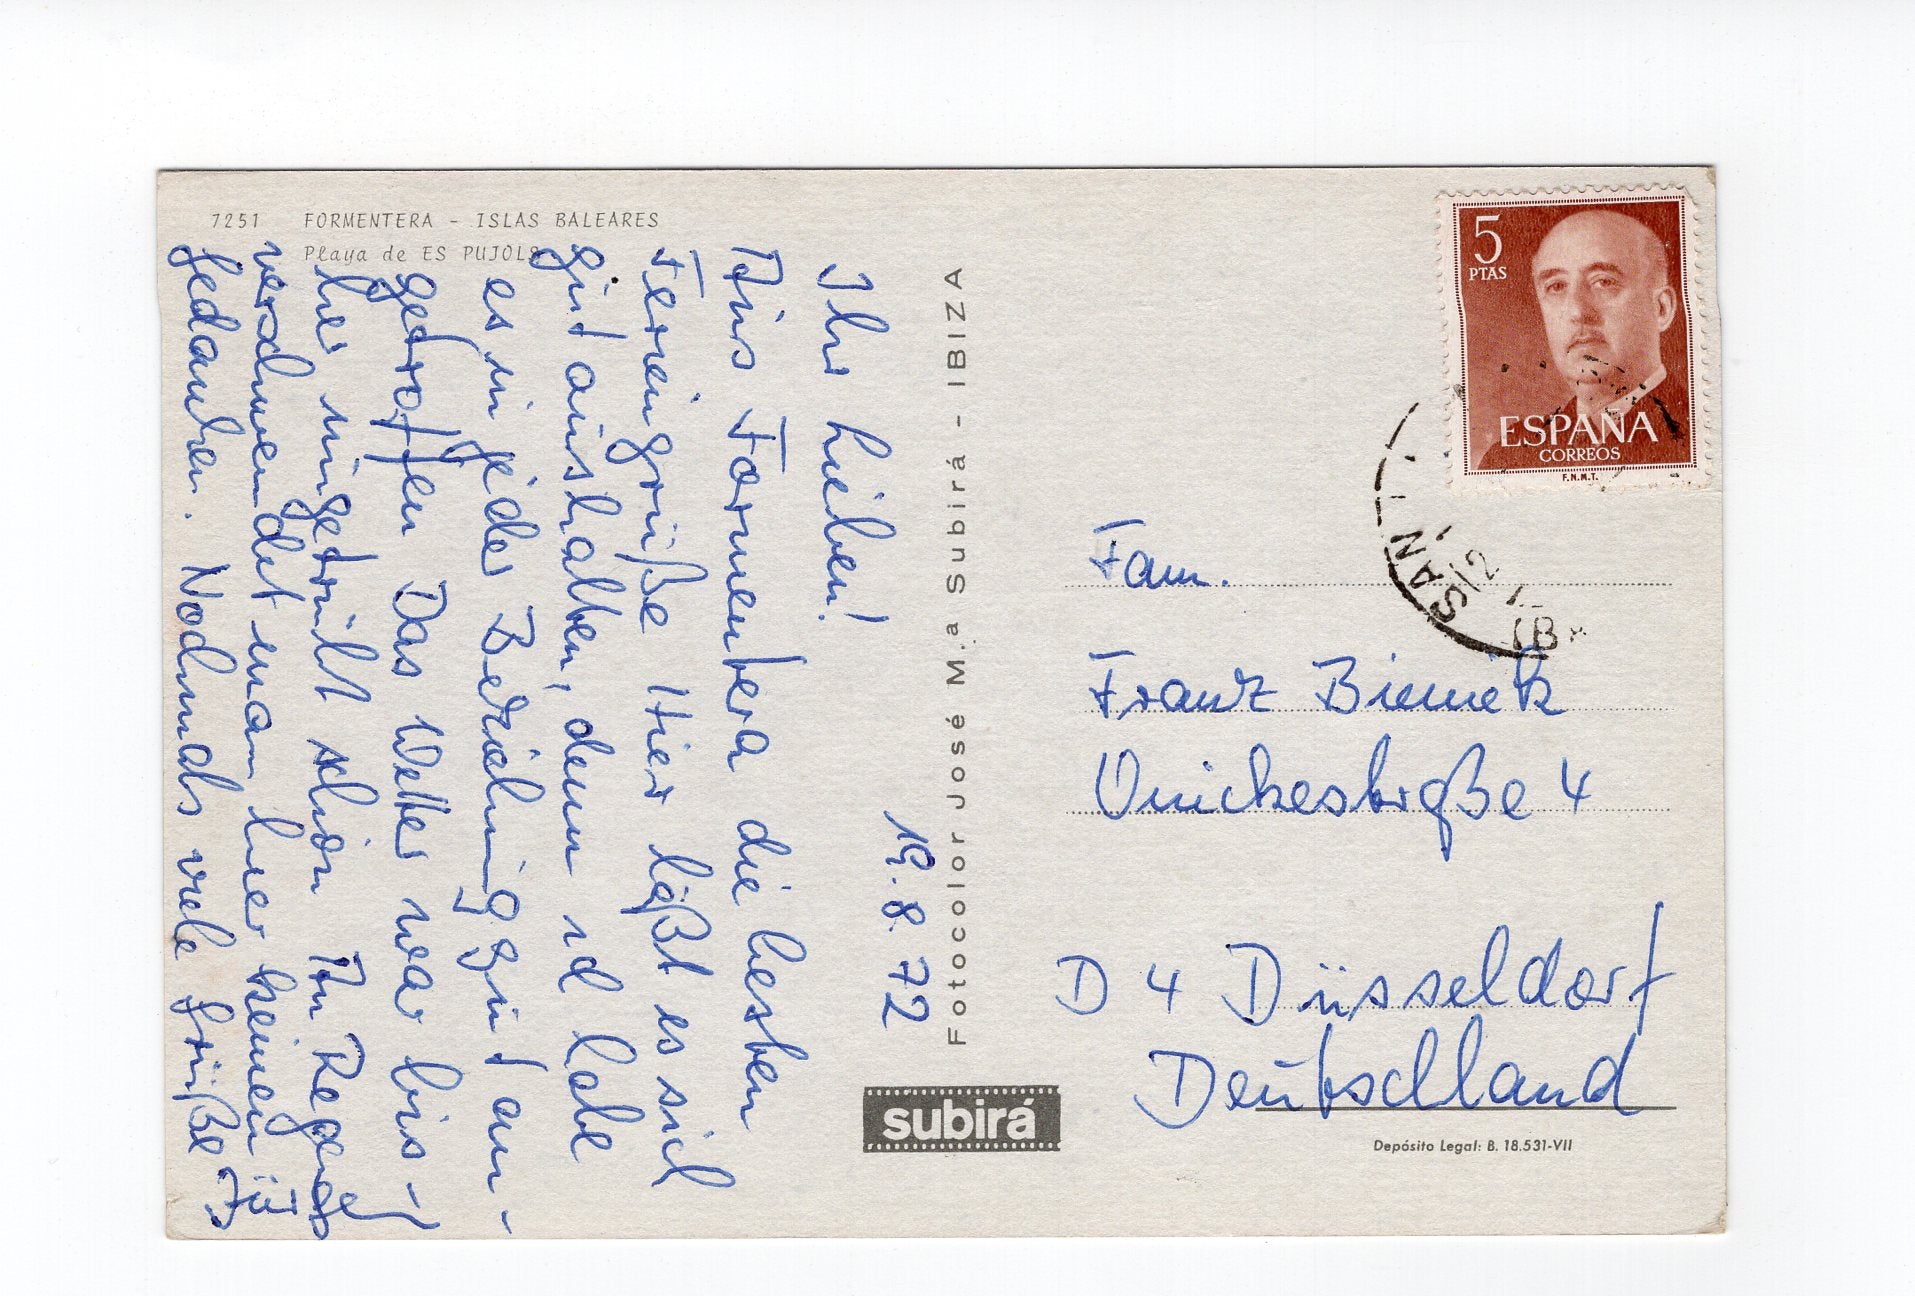 7251 FORMENTERA - ISLAS BALEARES
Playa de ES PUJOLS
19.8.72
Ihr Lieben!
Aus Formentera die besten
Feriengrüße Hier läßt es sich
gut aushalten, denn id habe
es in jeder Beziehung gut an-
getroffen Das Wetter war bis-
her ungetrübt schön An Regen
verschwendet man hier keinen
Gedanken. Nochmals viele Grüße
Fotocolor José M.a Subirá - IBIZA
subirá
5
PTAS
ESPAÑA
CORREOS
F.N.M.T.
SAN
Fam.
Franz Bieniek
4
D 4 Düsseldorf
Deutschland
Depósito Legal: B. 18.531-VII